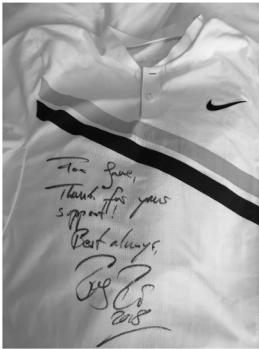 Thanks for your
support!
Best always,
2018